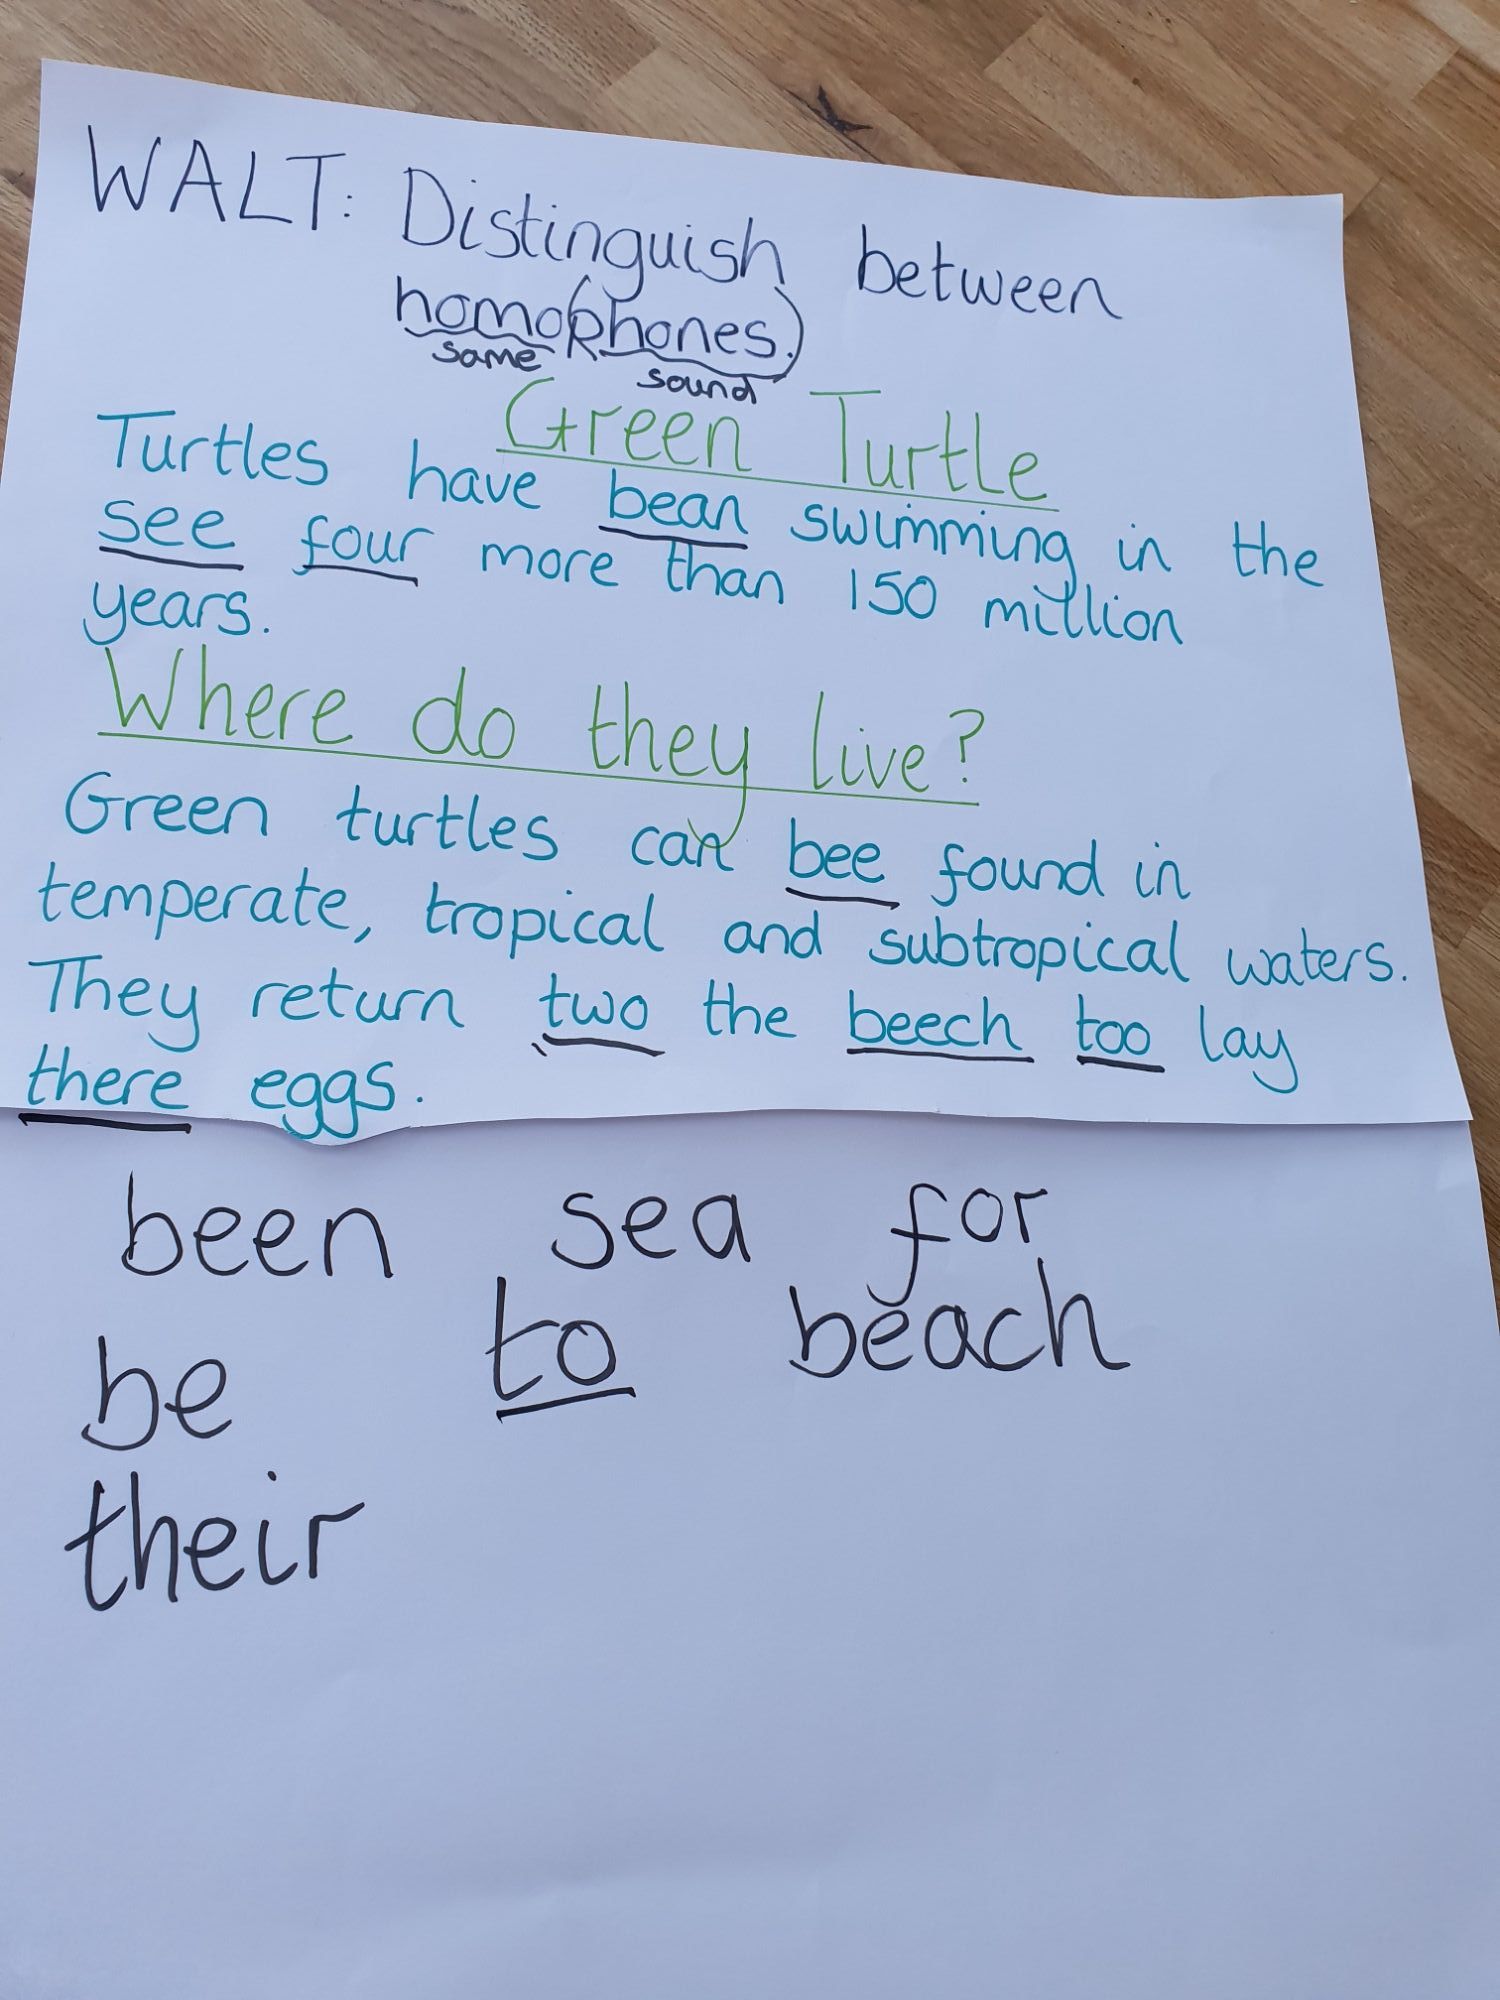 WALT: Distinguish between
homophones.
same sound
Green Turtle
Turtles have bean swimming in the
see four more than 150 million
years.
Where do they live?
Green turtles can bee found in
temperate, tropical and subtropical waters.
They return two the beech too lay
there eggs.
been sea for
be to beach
their